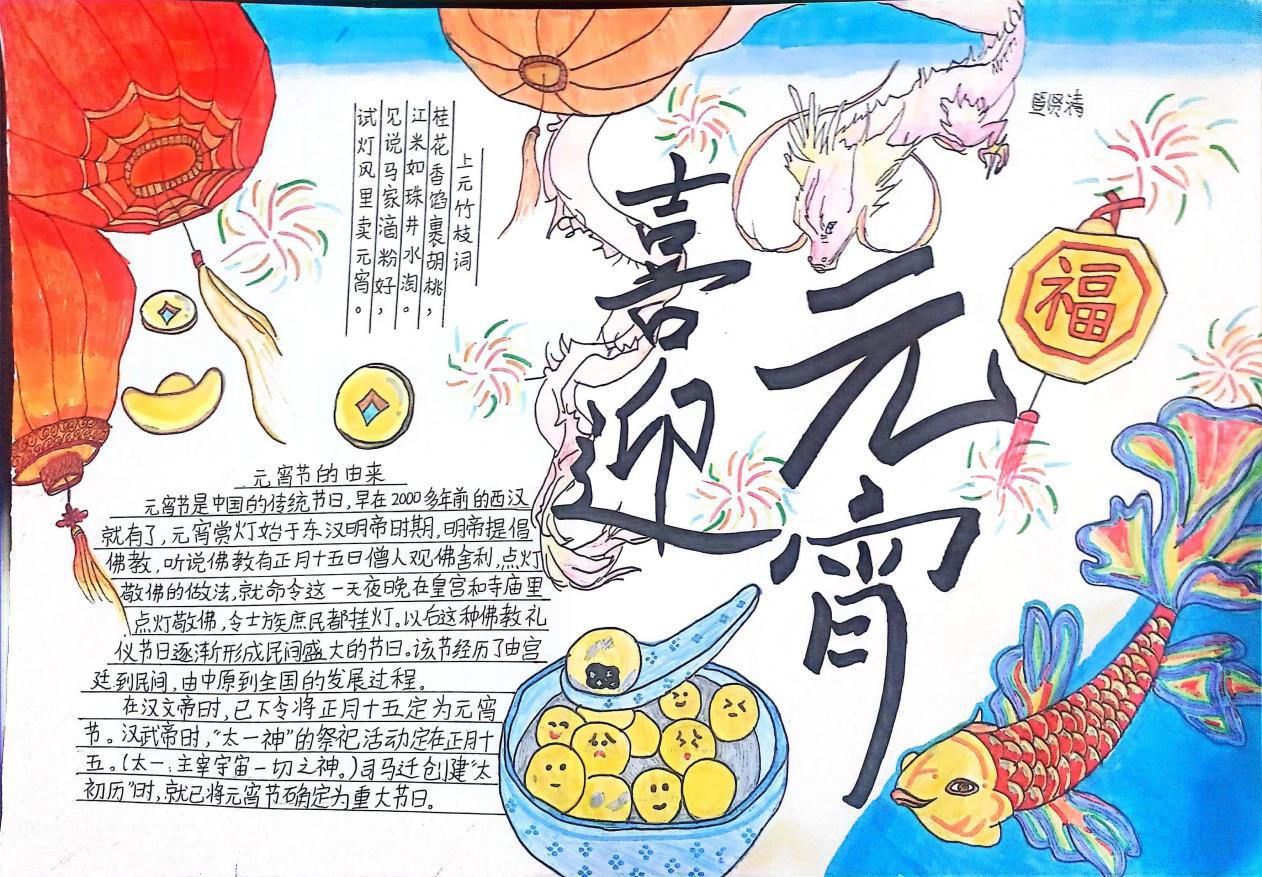 喜迎
元宵
福
上元竹枝词
桂花香馅裹胡桃，
江米如珠井水淘。
见说马家滴粉好，
试灯风里卖元宵。
元宵节的由来
元宵节是中国的传统节日，早在2000多年前的西汉
就有了，元宵赏灯始于东汉明帝时期，明帝提倡
佛教，听说佛教有正月十五日僧人观佛舍利，点灯
敬佛的做法，就命令这一天夜晚在皇宫和寺庙里
点灯敬佛，令士族庶民都挂灯。以后这种佛教礼
仪节日逐渐形成民间盛大的节日。该节经历了由宫
廷到民间，由中原到全国的发展过程。
在汉文帝时，已下令将正月十五定为元宵
节。汉武帝时，“太一神”的祭祀活动定在正月十
五。（太一：主宰宇宙一切之神。）司马迁创建“太
初历”时，就已将元宵节确定为重大节日。